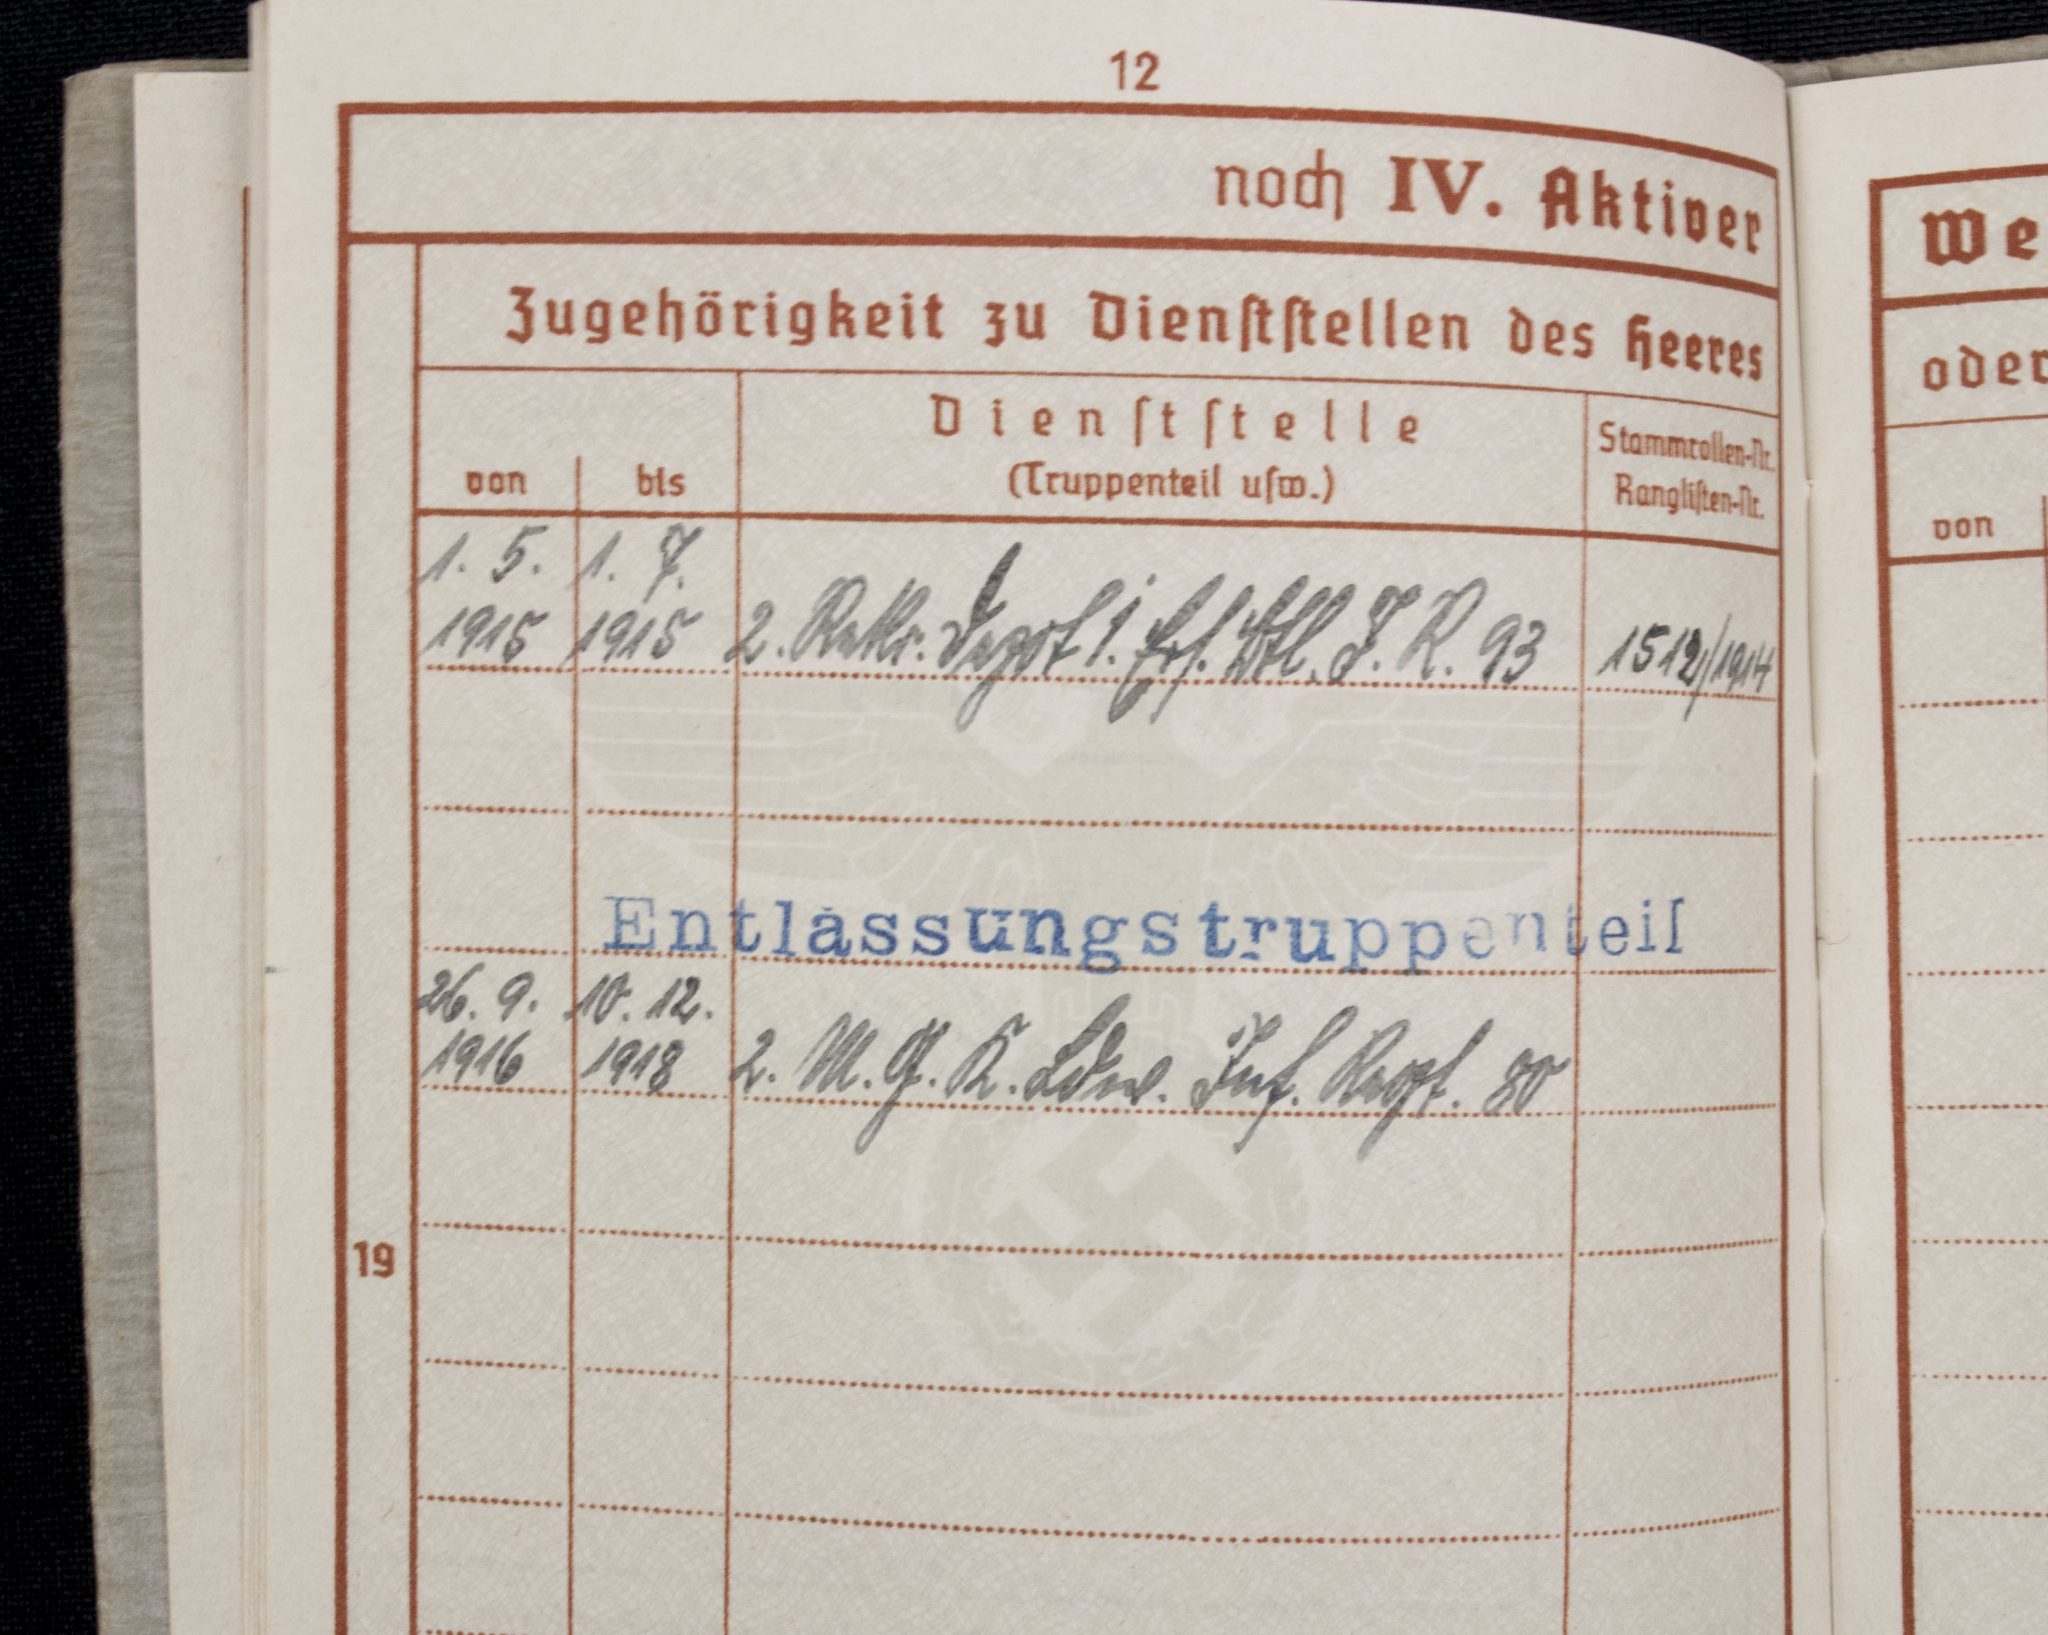 12
noch IV. Aktiver
Zugehörigkeit zu Dienststellen des Heeres
von
bis
Dienststelle
(Truppenteil usw.)
Stammrollen-Nr.
Ranglisten-Nr.
1. 5. 1915
1. 7. 1915
2. Rekr. Depot I. Ers. Btl. I. R. 93
1512/1914
Entlassungstruppenteil
26. 9. 1916
10. 12. 1918
2. M. G. K. Ldw. Inf. Regt. 80
19
We
oder
von